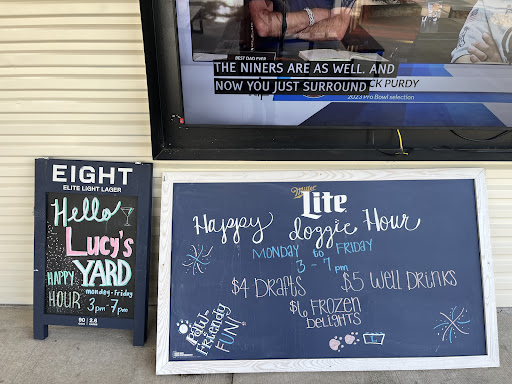 BEST DAD EVER
THE NINERS ARE AS WELL. AND
NOW YOU JUST SURROUND
CK PURDY
2023 PRO BOWL SELECTION
EIGHT
ELITE LIGHT LAGER
Hello
Lucy's
YARD
HAPPY
HOUR
monday - Friday
3pm - 7pm
90 2.6
Miller
Lite
Happy doggie Hour
MONDAY to FRIDAY
3 - 7pm
$4 DRAFTS
$5 WELL DRINKS
$6 FROZEN
DELIGHTS
PAW-
Friendly
FUN!